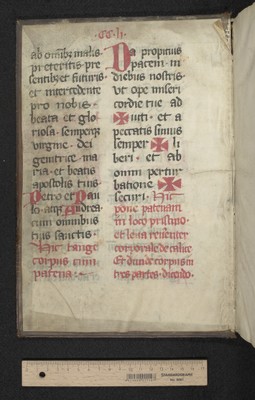 ·CC·li·
ab omībꝫ malis
preteritis pre
sentibꝫ et futuris
et intercedente
pro nobis
beata et glo
riosa semperqꝫ
virgine dei
genitrice ma
ria et beatis
apostolis tuis
Petro et Pau
lo atqꝫ Andrea
cum omnibus
sanctis
Hic tange
corpus cum
patena
Da propitius
pacem in
diebus nostris
vt ope miseri
cordie tue ad
iuti et a
peccatis simus
semper li
beri et ab
omni pertur
batione
securi Hic
pone patenam
in loco pristino
et leva reverenter
corporale de calice